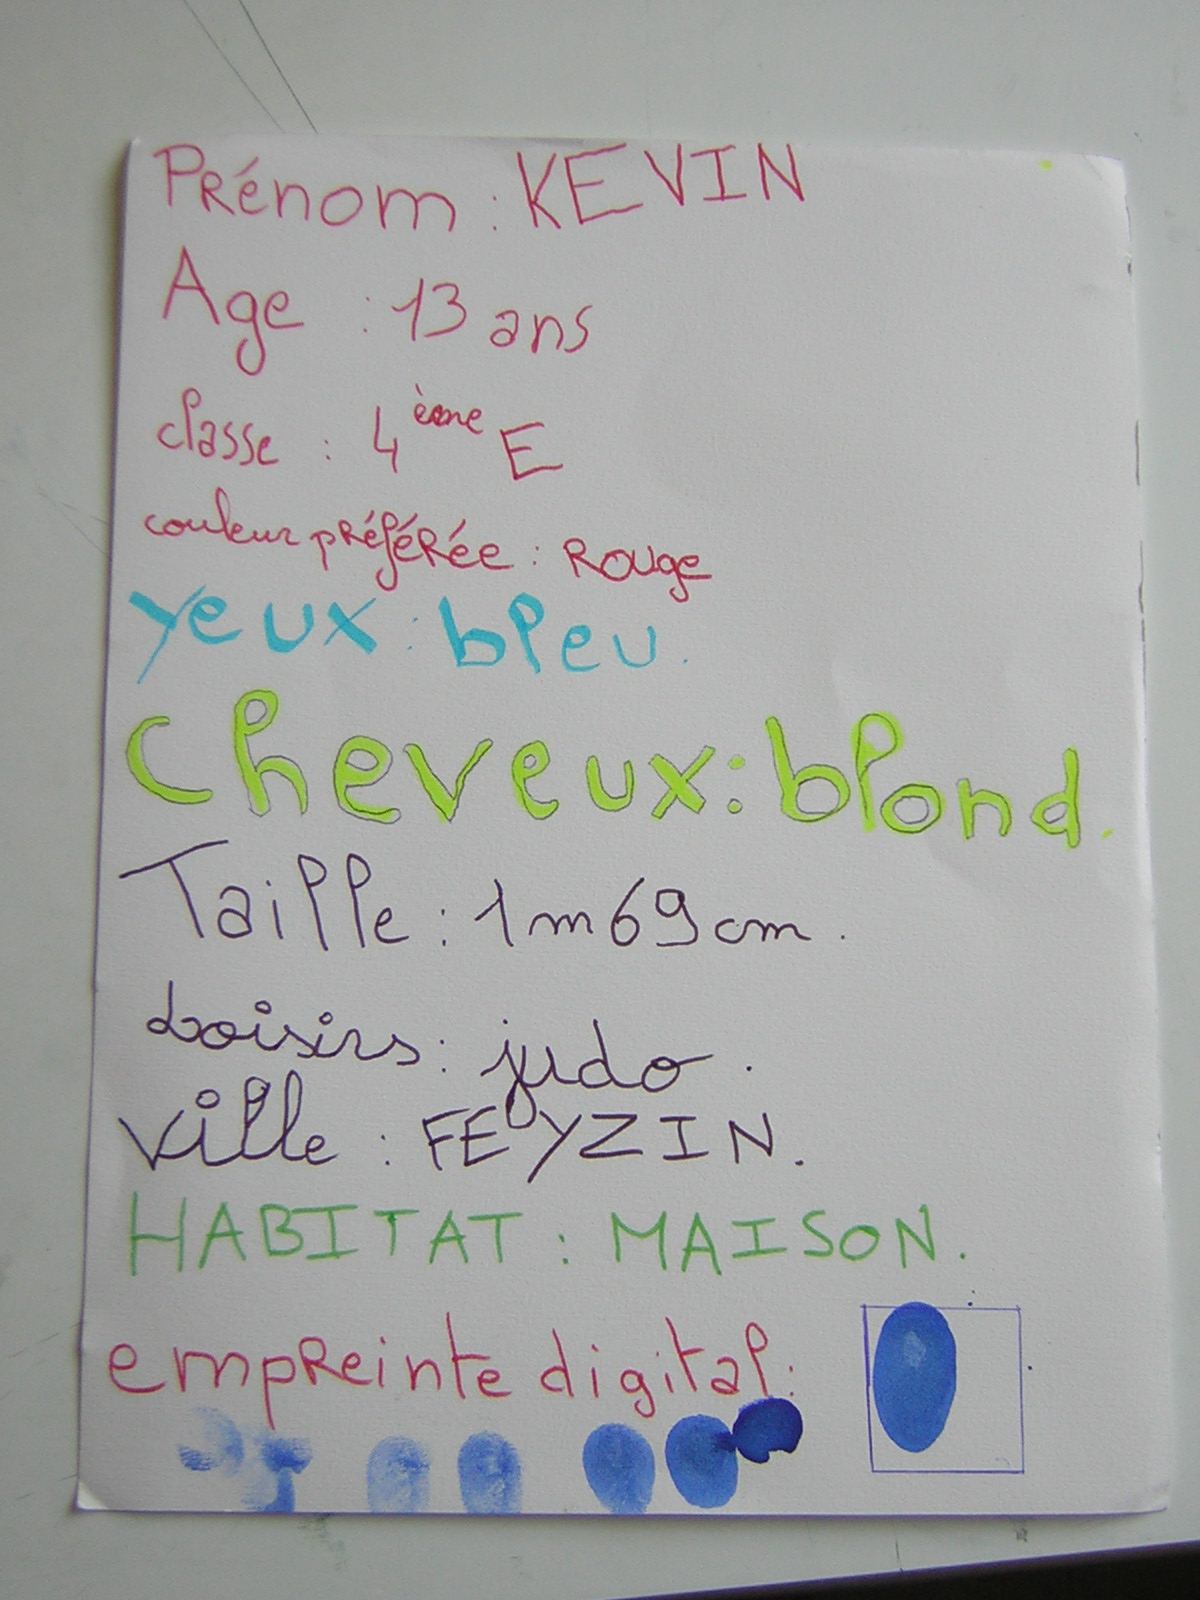 Prénom : KEVIN
Age : 13 ans
classe : 4 ème E
couleur préférée : Rouge
Yeux : bleu.
Cheveux : blond.
Taille : 1m69cm.
Loisirs : judo.
Ville : FEYZIN.
HABITAT : MAISON.
empreinte digital :